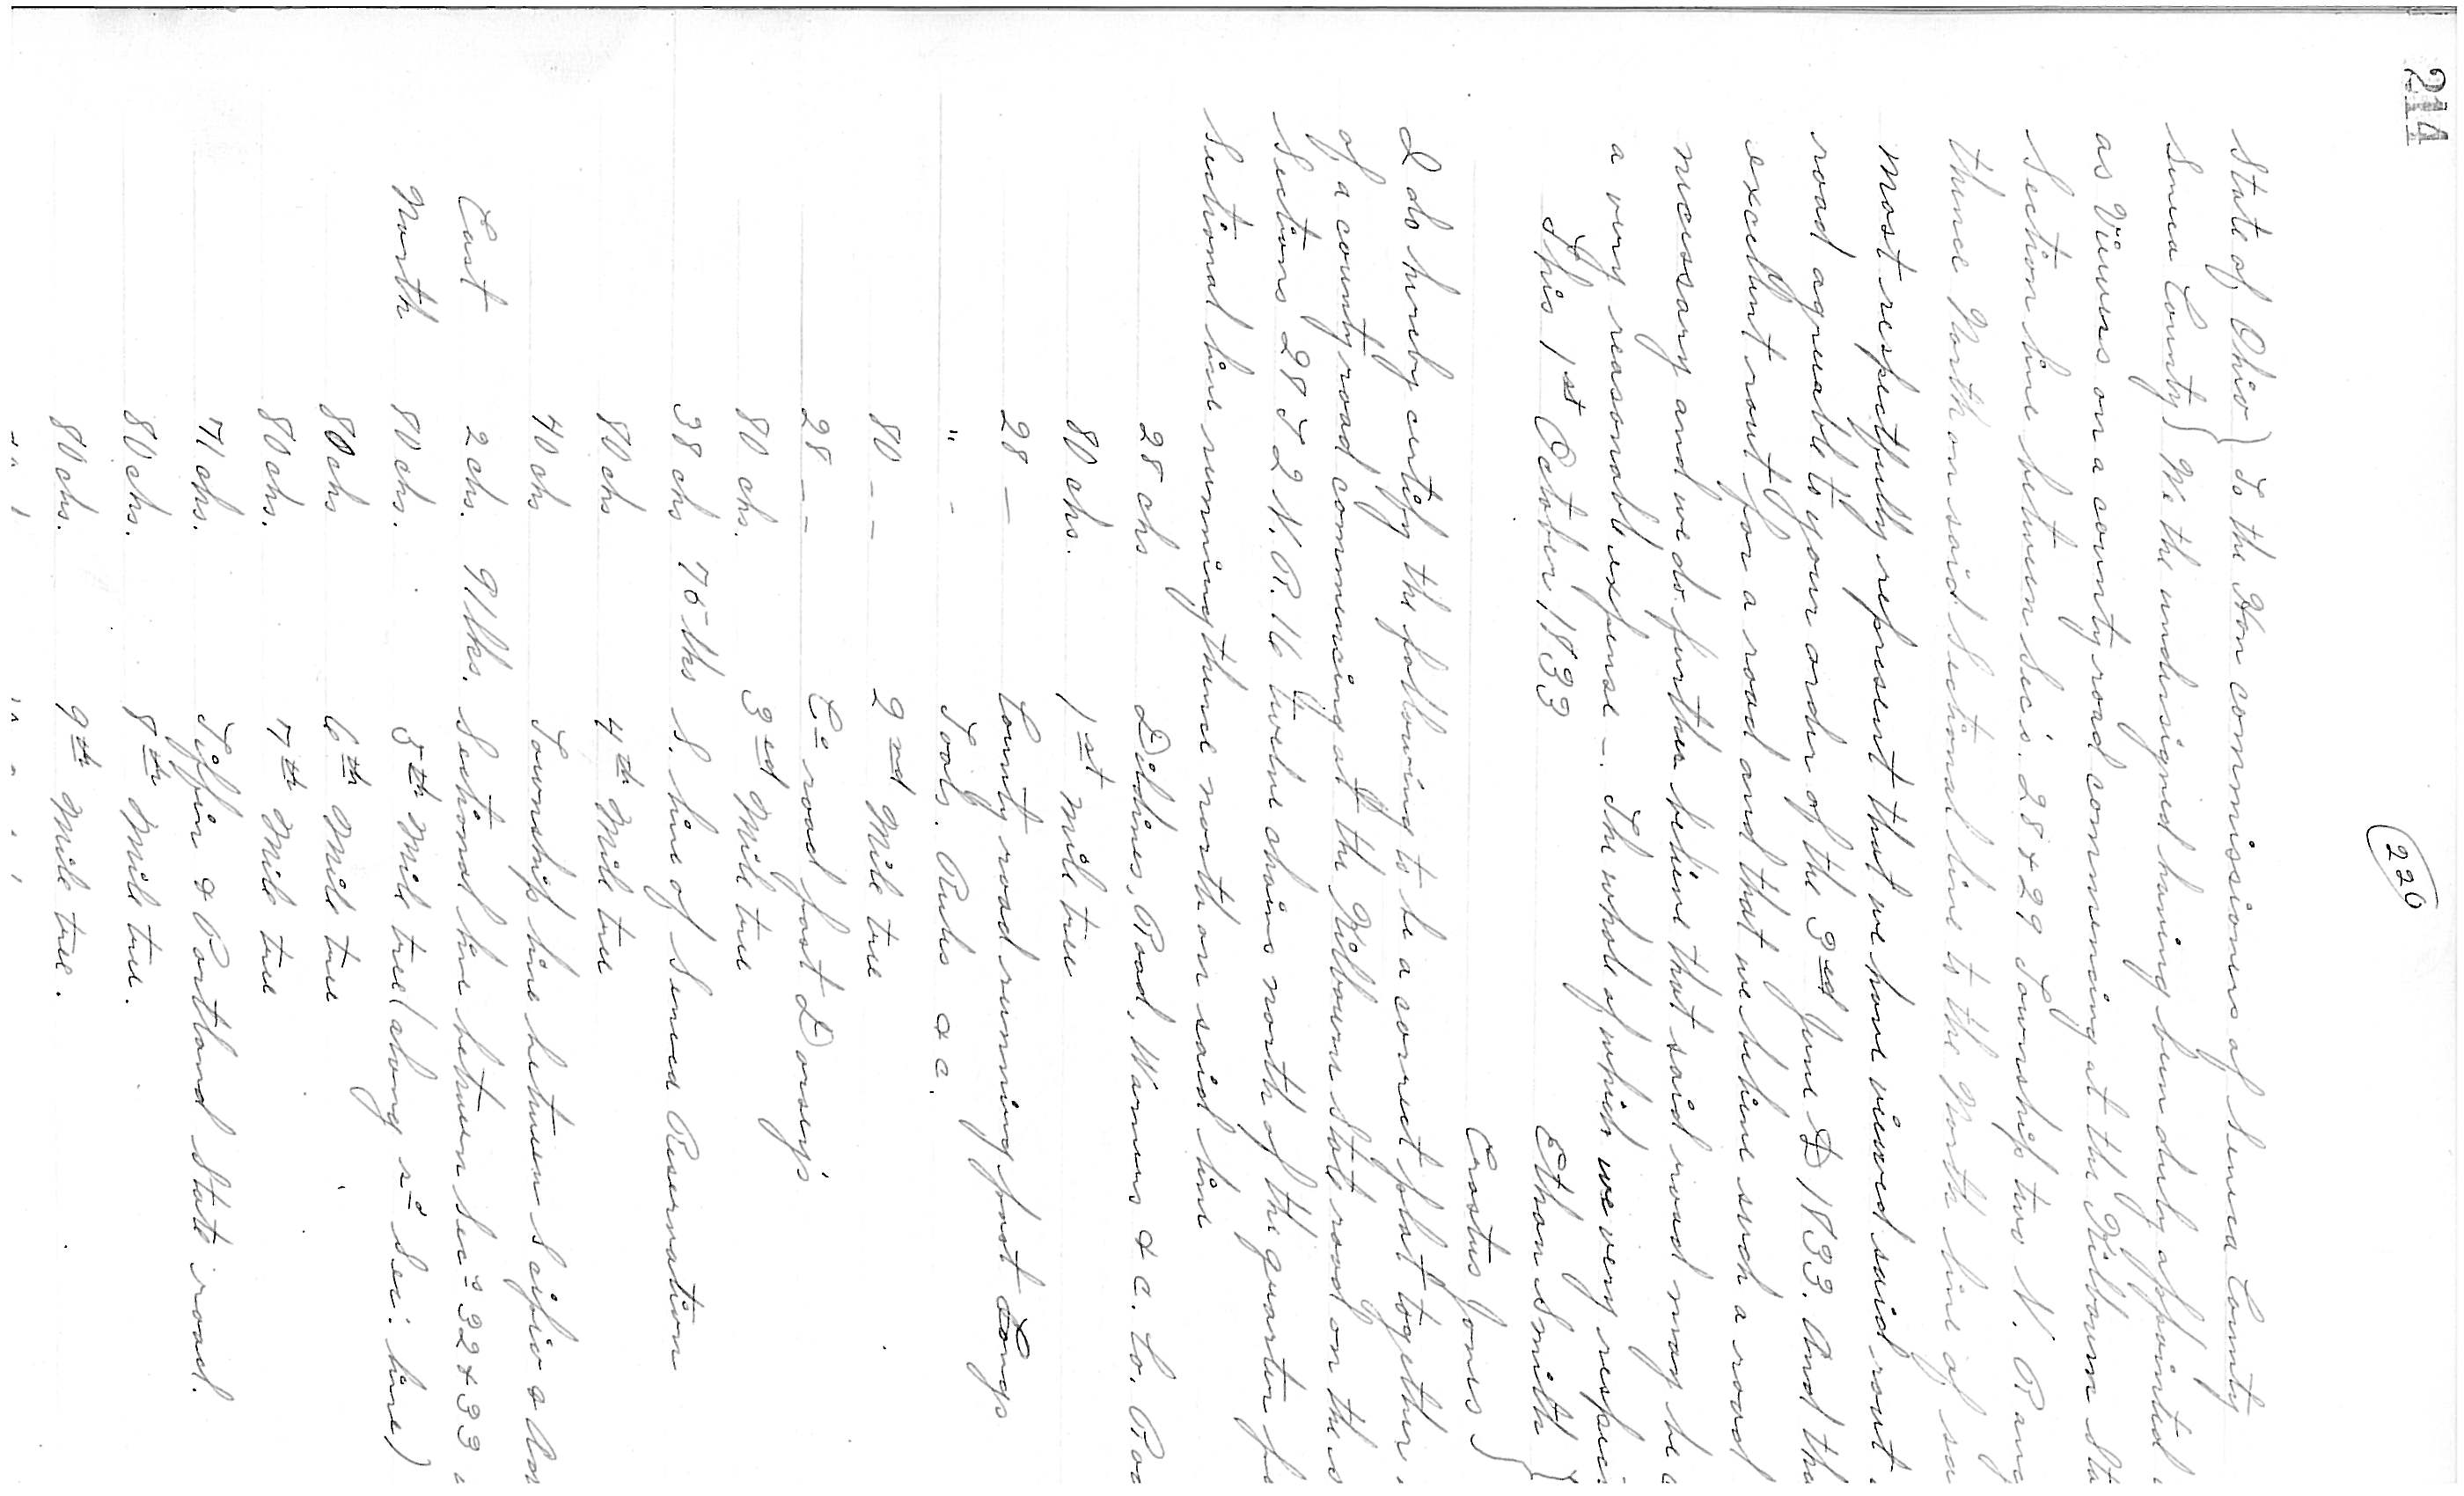 214
226
State of Ohio } To the Hon commissioners of Seneca County
Seneca County } We the undersigned having been duly appointed
as Viewers on a county road commencing at the Kilbourn Sta
Section line between Sec's. 28 & 29 Township two N. Rang
thence North on said Sectional line to the North line of sa
most respectfully represent that we have viewed said rout
road agreeable to your order of the 3ed June D 1833. And tha
excelent rout for a road and that we believe such a road
necessary and we do further believe that said road may be
a very reasonable expense - The whole of which we very respec
This 1st October 1833
Ethan Smith }
Erastus Jones }
I do hereby certify the following to be a correct plat together
of a county road commencing at the Kilbourn State road on the s
Sections 28 T 2 N. R. 16 twelve chains north of the quarter po
Sectional line running thence north on said line
28 chs Dildines, Road, Warners & c. Co. Roa
80 chs. 1st Mile tree
28 — County road running past Longs
" - Tools. Rushs & c.
80 — — 2nd Mile tree
28 — — Co road past Dorsey's
80 chs. 3ed Mile tree
38 chs 75 lks S. line of Seneca Reservation
80 chs 4th Mile tree
40 chs Township line between Scipio & Ada
East 2 chs. 9 lks. Sectional line between Secs 32 & 33
North 80 chs. 5th Mile tree (along sd Sec: line)
80 chs 6th Mile tree
80 chs. 7th Mile tree
71 chs. Tiffin & Portland State road.
80 chs. 8th Mile tree.
80 chs. 9th Mile tree.